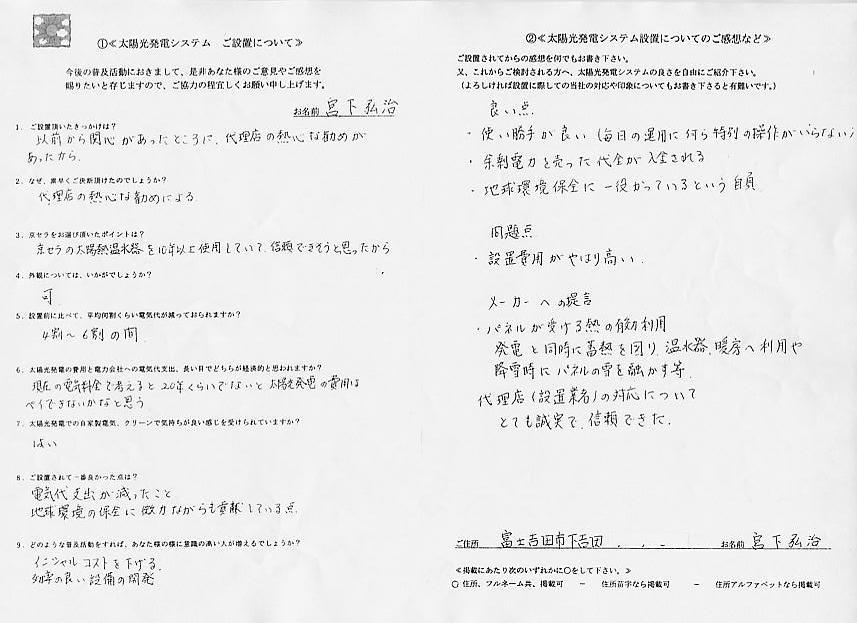 ①≪太陽光発電システム ご設置について≫
今後の普及活動におきまして、是非あなた様のご意見やご感想を
賜りたいと存じますので、ご協力の程宜しくお願い申し上げます。
お名前 宮下弘治
1．ご設置頂いたきっかけは？
以前から関心があったところに、代理店の熱心な勧めが
あったから。
2．なぜ、素早くご決断頂けたのでしょうか？
代理店の熱心な勧めによる
3．京セラをお選び頂いたポイントは？
京セラの太陽熱温水器を10年以上使用していて、信頼できそうと思ったから
4．外観については、いかがでしょうか？
可
5．設置前に比べて、平均何割くらい電気代が減っておられますか？
4割～6割の間
6．太陽光発電の費用と電力会社への電気代支出、長い目でどちらが経済的と思われますか？
現在の電気料金で考えると20年くらいでないと太陽光発電の費用は
ペイできないかなと思う
7．太陽光発電での自家製電気、クリーンで気持ちが良い感じを受けられていますか？
はい
8．ご設置されて一番良かった点は？
電気代支出が減ったこと
地球環境の保全に微力ながらも貢献している点
9．どのような普及活動をすれば、あなた様の様に意識の高い人が増えるでしょうか？
イニシャルコストを下げる。
効率の良い設備の開発
②≪太陽光発電システム設置についてのご感想など≫
ご設置されてからの感想を何でもお書き下さい。
又、これからご検討される方へ、太陽光発電システムの良さを自由にご紹介下さい。
（よろしければ設置に際しての当社の対応や印象についてもお書き下さると有難いです。）
良い点
・使い勝手が良い（毎日の運用に何ら特別の操作がいらない）
・余剰電力を売った代金が入金される
・地球環境保全に一役かっているという自負
問題点
・設置費用がやはり高い。
メーカーへの提言
・パネルが受ける熱の有効利用
発電と同時に蓄熱を図り、温水器、暖房へ利用や
降雪時にパネルの雪を融かす等。
代理店（設置業者）の対応について
とても誠実で、信頼できた。
ご住所 富士吉田市下吉田 お名前 宮下弘治
≪掲載にあたり次のいずれかに○をして下さい。≫
○ 住所、フルネーム共、掲載可 － 住所苗字なら掲載可 － 住所アルファベットなら掲載可